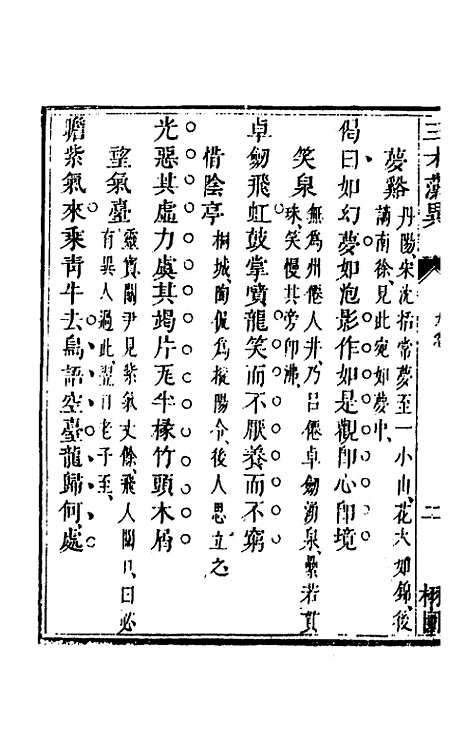 三才藻異
二
栩園
夢谿 丹陽宋沈括常夢至一小山花大如錦後
謫南徐見此宛如夢中
偈曰如幻夢如泡影作如是觀卽心卽境
笑泉 無爲州僊人井乃呂僊卓劒湧泉纍若貫
珠笑慢其旁卽沸
卓劒飛虹鼓掌濆龍笑而不厭養而不窮
惜陰亭 桐城陶侃爲樅陽令後人思立之
光惡其虛力虞其竭片瓦半椽竹頭木屑
望氣臺 靈寶關尹見紫氣丈餘飛人關口曰必
有異人過此翌日老子至
瞻紫氣來乘青牛去鳥語空臺龍歸何處